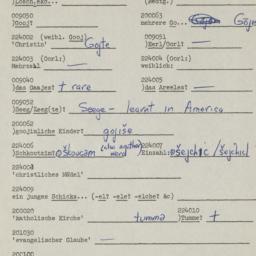 )Losch.eko...
009050 200063
)Gooj! mehrere Go... Gojte Göjte
224002 (weibl. Gooj) 009051
'Christin' Gojte )Eerl/Oorl! —
224003 (Oorl:) 224004 (Oorl:)
Mehrzahl — weiblich: —
009040 224005
)das Gaajes! † rare )das Areeles! —
009052
)Seeg/Leeg(te)! Seege - learnt in America
200062
goojische Kinder? gojiše
224006 224007
)Schkootzim! (also another word) Einzahl: šejchic / šejchic!
224008
'christliches Mädel'
224009
ein junges Schicks... (-el? -ele? -elche? &c)
200020 224010
'katholische Kirche' tumma )Tumme! †
201030
'evangelischer Glaube' —
200100